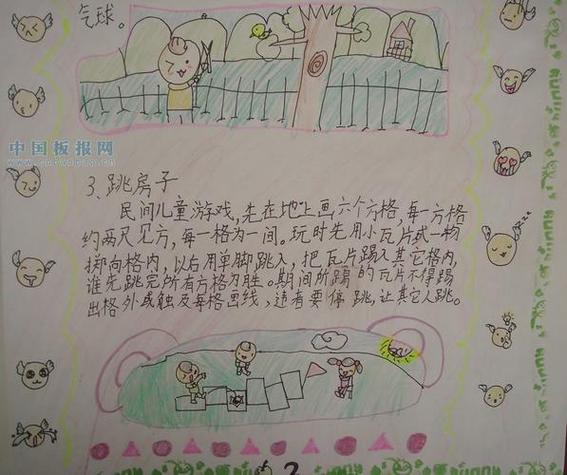 气球。
中国板报网
3、跳房子
民间儿童游戏,先在地上画六个方格,每一方格
约两尺见方,每一格为一间。玩时先用小瓦片或一物
掷向格内,以右用单脚跳入,把瓦片踢入其它格内,
谁先跳完所有方格为胜。期间所踢的瓦片不得踢
出格外或触及每格画线,违者要停跳,让其它人跳。
2